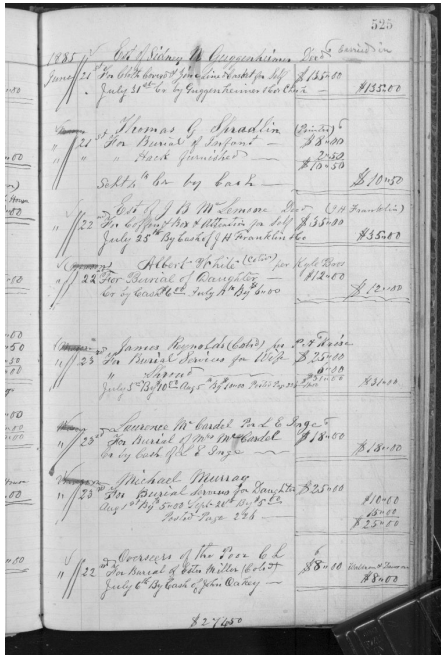 525
1885 Est of Sidney N Guggenheimer Decd carried in
June 21st For Cloth Covered Zinc Lined Casket for Self $135.00
July 31st Cr by Guggenheimer & Co Check $135.00
Thomas G Shradlin
21st For Burial of Infant $8.00
" " Hack furnished 2.50
$10.50
Sept 4th Cr by Cash $10.50
Est of J B McLemore Decd (J H Franklin)
" 22nd For Coffin & Box & Attention for Self $35.00
July 25th By Cash of J H Franklin & Co $35.00
Albert White (Cold) per Kyle Bros
" 22 For Burial of Daughter $12.00
Cr by Cash 6.00 July By $6.00 $12.00
James Reynolds (Cold)
" 23rd For Burial Services for Wife $25.00
" Shroud 6.00
$31.00
July 5th By 10.00 Aug 5th By Posted Page $31.00
Laurence McCardel Per L E Page
" 23rd For Burial of Mrs McCardel $18.00
Cr by Cash of L E Page $18.00
Michael Murray
" 23rd For Burial Services for Daughter $25.00
Aug 1st By 5.00 Sept 28th By 5.00 $10.00
Posted Page 226 15.00
$25.00
Overseers of the Poor C L
" 22nd For Burial of Miller (Cold) $8.00
July 6th By Cash of John Oakey $8.00
$274.50